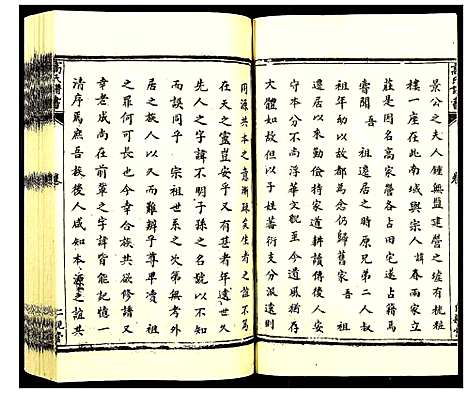 景公之夫人鍾無盬建營之墟有桃粗
樓一座在此南城與宗人諱春兩家立
莊是因名高家營各占田宅遂占籍焉
嘗聞吾 祖遠居之時原兄弟二人叔
祖年幼以故都為念仍歸舊家吾 祖
居以來勤儉持家道耕讀傳後人安
守本分不尚浮華文貌至今遺風猶存
大體如故但以子姓蕃衍支分派遠則
同源共本之意漸踈矣生者之誼不篤
在天之靈豈安乎又有甚者年遠世久
先人之字諱不明子孫之名號以不
而誤同乎 宗祖世系之次第無考外
居之族人以又而難辨乎尊卑凌
之罪何可長也今幸合族共欲修譜又
幸老成尚在前輩之字諱皆能記憶一
清序庶吾族後人咸知本源之誼共
高氏譜書
卷
二